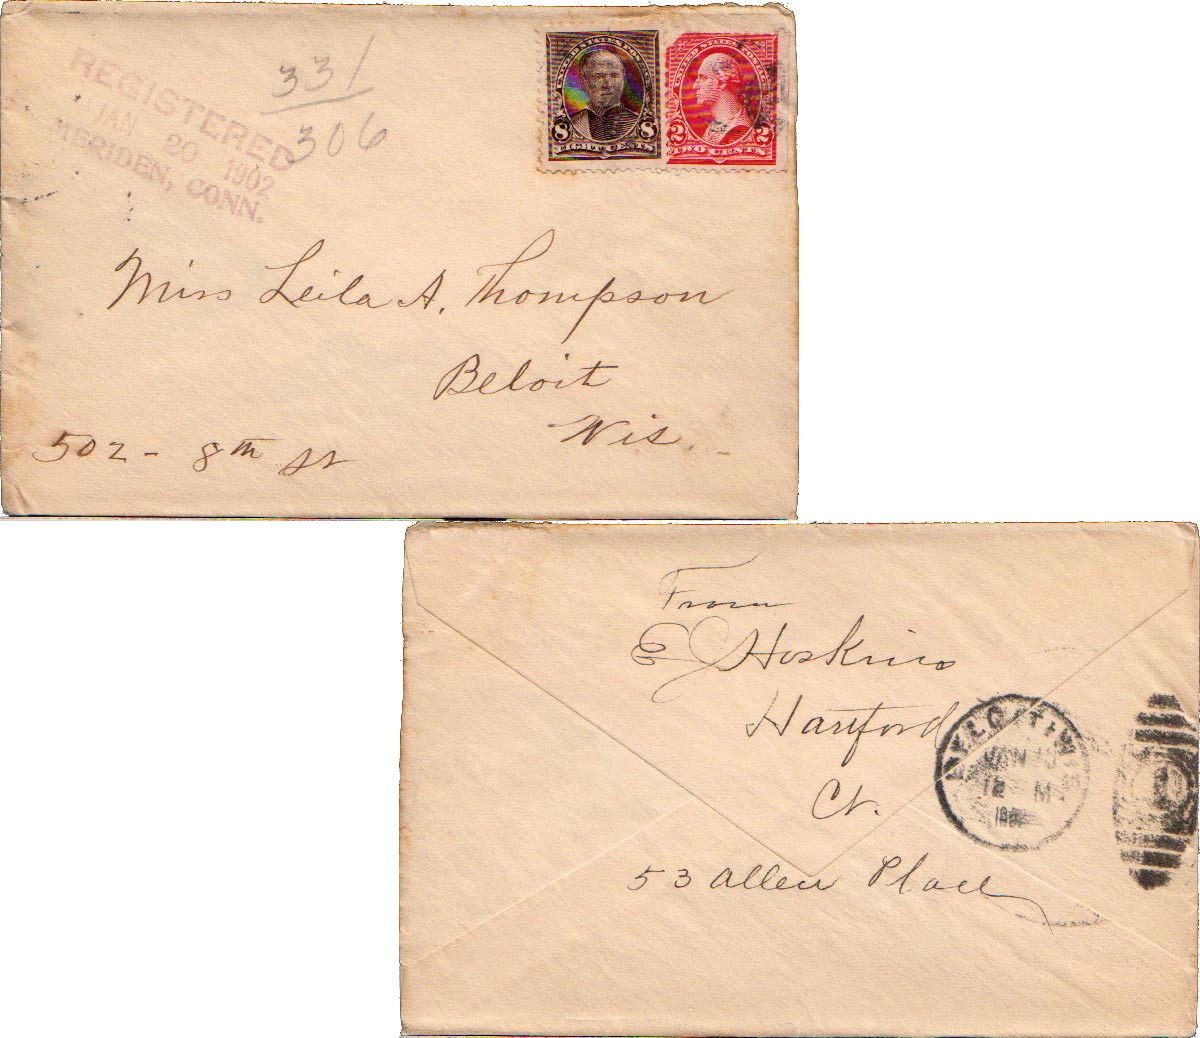 REGISTERED
JAN 20 1902
MERIDEN, CONN.
331
306
UNITED STATES POSTAGE
8 8
EIGHT CENTS
UNITED STATES POSTAGE
2 2
TWO CENTS
Miss Leila A. Thompson
Beloit
Wis.
502 - 8th St
From
E J Hoskins
Hartford
Ct.
53 Allen Place
BELOIT, WIS
JAN
12 M